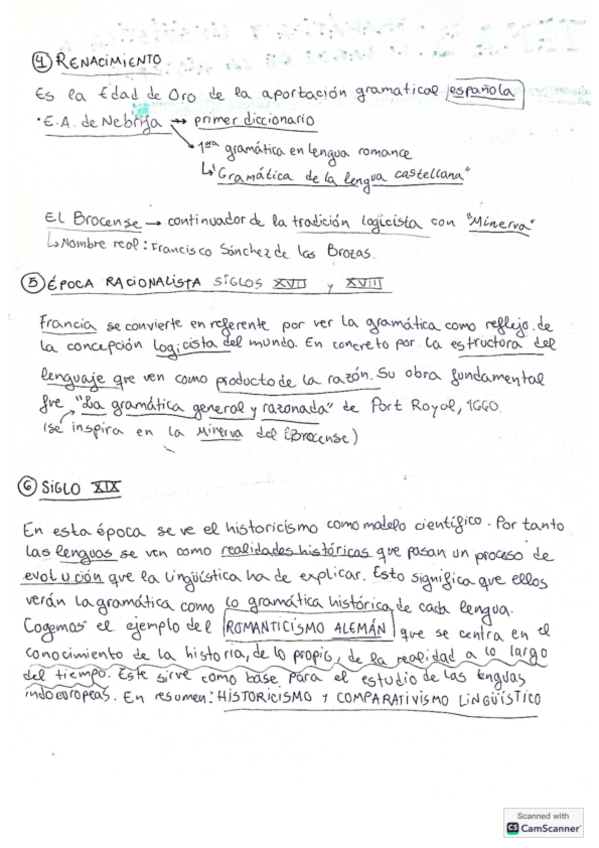 ④ RENACIMIENTO
Es la Edad de Oro de la aportación gramatical española
· E.A. de Nebrija → primer diccionario
→ 1era gramática en lengua romance
↳ "Gramática de la lengua castellana"
EL Brocense → continuador de la tradición logicista con "Minerva"
↳ Nombre real: Francisco Sánchez de las Brozas.
⑤ ÉPOCA RACIONALISTA SIGLOS XVII y XVIII
Francia se convierte en referente por ver la gramática como reflejo de
la concepción logicista del mundo. En concreto por la estructura del
lenguaje que ven como producto de la razón. Su obra fundamental
fue "La gramática general y razonada" de Port Royal, 1660.
(se inspira en la Minerva del Brocense)
⑥ SIGLO XIX
En esta época se ve el historicismo como modelo científico. Por tanto
las lenguas se ven como realidades históricas que pasan un proceso de
evolución que la lingüística ha de explicar. Esto significa que ellos
verán la gramática como la gramática histórica de cada lengua.
Cogemos el ejemplo del ROMANTICISMO ALEMÁN que se centra en el
conocimiento de la historia, de lo propio, de la realidad a lo largo
del tiempo. Este sirve como base para el estudio de las lenguas
indoeuropeas. En resumen: HISTORICISMO Y COMPARATIVISMO LINGÜÍSTICO
Scanned with
CS CamScanner